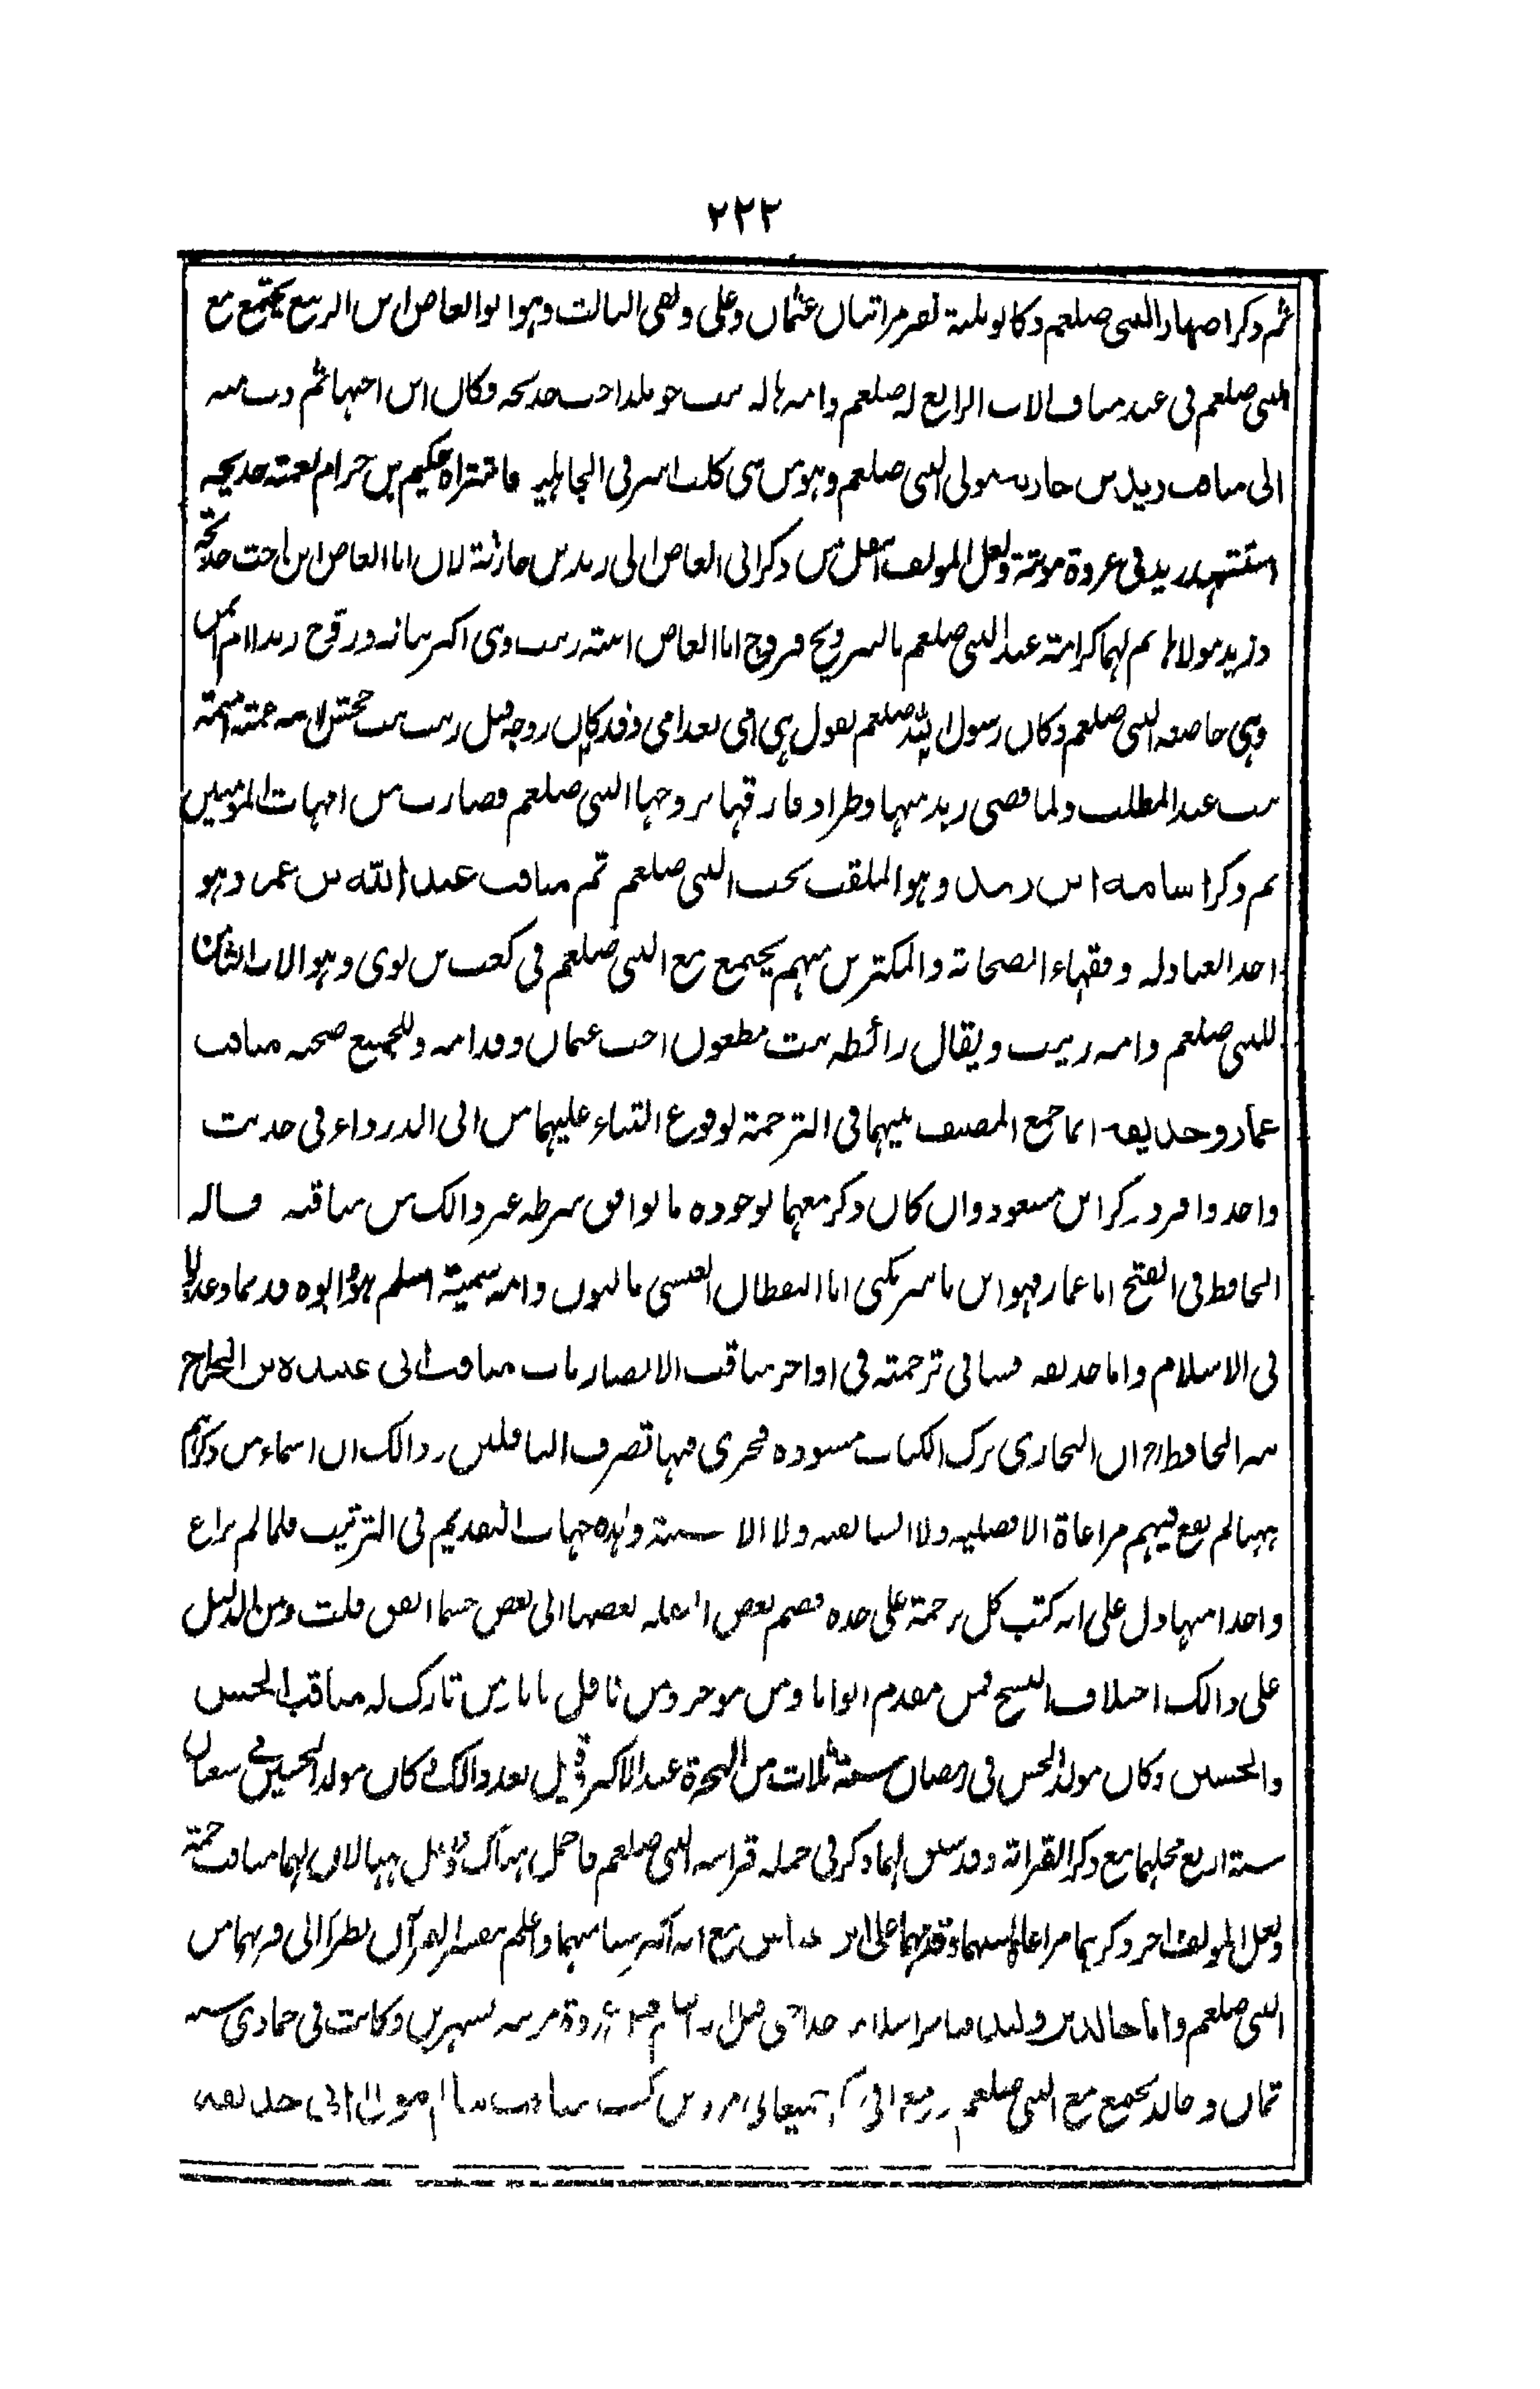 ٢٢٢
ثم ذكر اصهار النبي صلعم وكانوا ثلثة لقد مر اثنان عثمان وعلي وبقي الثالث وهو ابو العاص ابن الربيع يجتمع مع
النبي صلعم في عبد مناف الاب الرابع له صلعم وامه هالة بنت خويلد اخت خديجة فكان ابن اختها ثم
الى مناقب زيد بن حارثة مولى النبي صلعم وهو من بني كلب اسر في الجاهلية فاشتراه حكيم بن حزام لعمته خديجة
استشهد زيد في غزوة موتة ولعل المولف من ذكر ابي العاص الى زيد بن حارثة لان ابا العاص ابن اخت خديجة
وزيد مولاها ثم لهما كرامة عند النبي صلعم بالتزويج فزوج ابا العاص ابنته زينب وهي اكبر بناته وزوج زيد ام ايمن
وهي حاضنة النبي صلعم وكان رسول الله صلعم يقول هي امي بعد امي وقد كان زوجه قبل زينب بنت جحش لانه عمته اميمة
بنت عبد المطلب ولما قضى زيد منها وطرا وفارقها تزوجها النبي صلعم فصارت من امهات المومنين
ثم ذكر اسامة ابن زيد وهو الملقب بحب النبي صلعم ثم مناقب عبد الله بن عمر وهو
احد العبادلة وفقهاء الصحابة والمكثرين منهم يجتمع مع النبي صلعم في كعب بن لوي وهو الاب الثامن
للنبي صلعم وامه زينب ويقال رائطة بنت مظعون اخت عثمان وقدامة وللجميع صحبة مناقب
عمار وحذيفة انما جمع المصنف بينهما في الترجمة لوقوع الثناء عليهما من ابي الدرداء في حديث
واحد وافرد ذكر ابن مسعود وان كان ذكر معهما لوجوده ما يوافق شرطه غير ذالك من مناقبه قاله
الحافظ في الفتح اما عمار فهو ابن ياسر يكنى ابا اليقظان العنسي بالنون وامه سمية اسلم هو وابوه قديما وعذبوا
في الاسلام واما حذيفة فسياتي ترجمته في اواخر مناقب الانصار باب مناقب ابي عبيدة بن الجراح
الحافظ ان البخاري ترك الكتاب مسودة فجرى فيها تصرف الناقلين وذالك ان اسماء من ذكرهم
ههنا لم يقع فيهم مراعاة الافضلية ولا السابقية ولا الاسنية وهذه جهات التقديم في الترتيب فلما لم يراع
واحدا منها دل على انه كتب كل ترجمة على حدة فضم بعض النقلة بعضها الى بعض حسما اتفق قلت ومن الدليل
على ذالك اختلاف النسخ فمن مقدم ابوابا ومن موخر ومن ناقل بابا ومن تارك له مناقب الحسن
والحسين وكان مولد الحسن في رمضان سنة ثلاث من الهجرة عند الاكثر وقيل بعد ذالك وكان مولد الحسين في شعبان
سنة اربع محلهما مع ذكر القرابة وقد سبق لهما ذكر في جملة قرابة النبي صلعم فاجمل هناك وفصل ههنا لان لهما مناقب جمة
ولعل المولف اخر ذكرهما مراعاة لسنهما وقدمهما على ابن عباس مع انه اكبر سنا منهما واعلم بتفسير القران نظرا الى قربهما من
النبي صلعم واما خالد بن وليد غزوة موتة بشهرين وكانت في جمادى سنة
ثمان وخالد يجتمع مع النبي صلعم مرة بن كعب مناقب سالم مولى ابي حذيفة